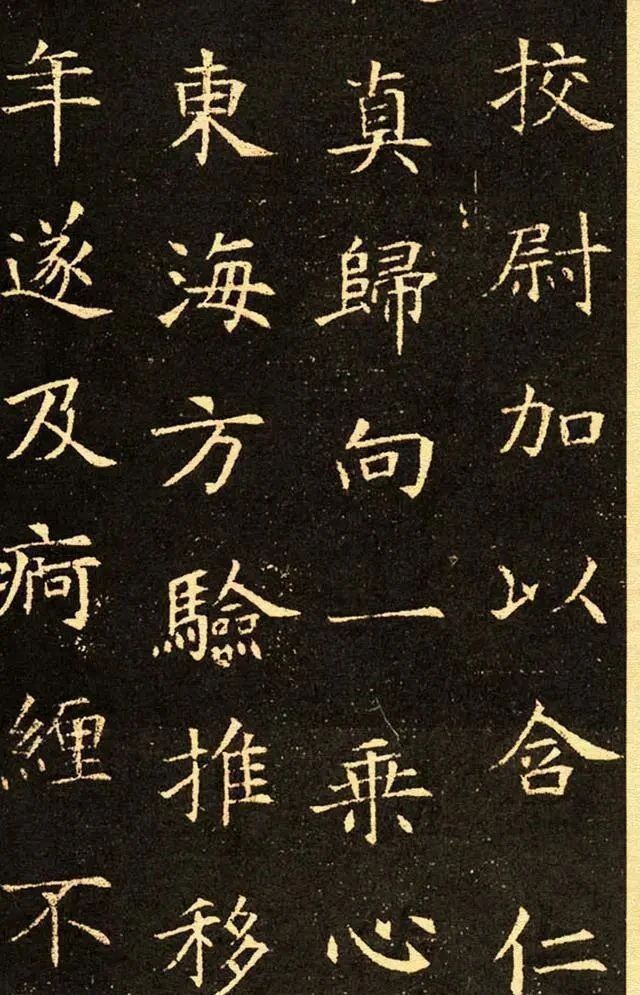 挍尉加以含仁
真歸向一乗心
東海方驗推移
年遂及痾纏不